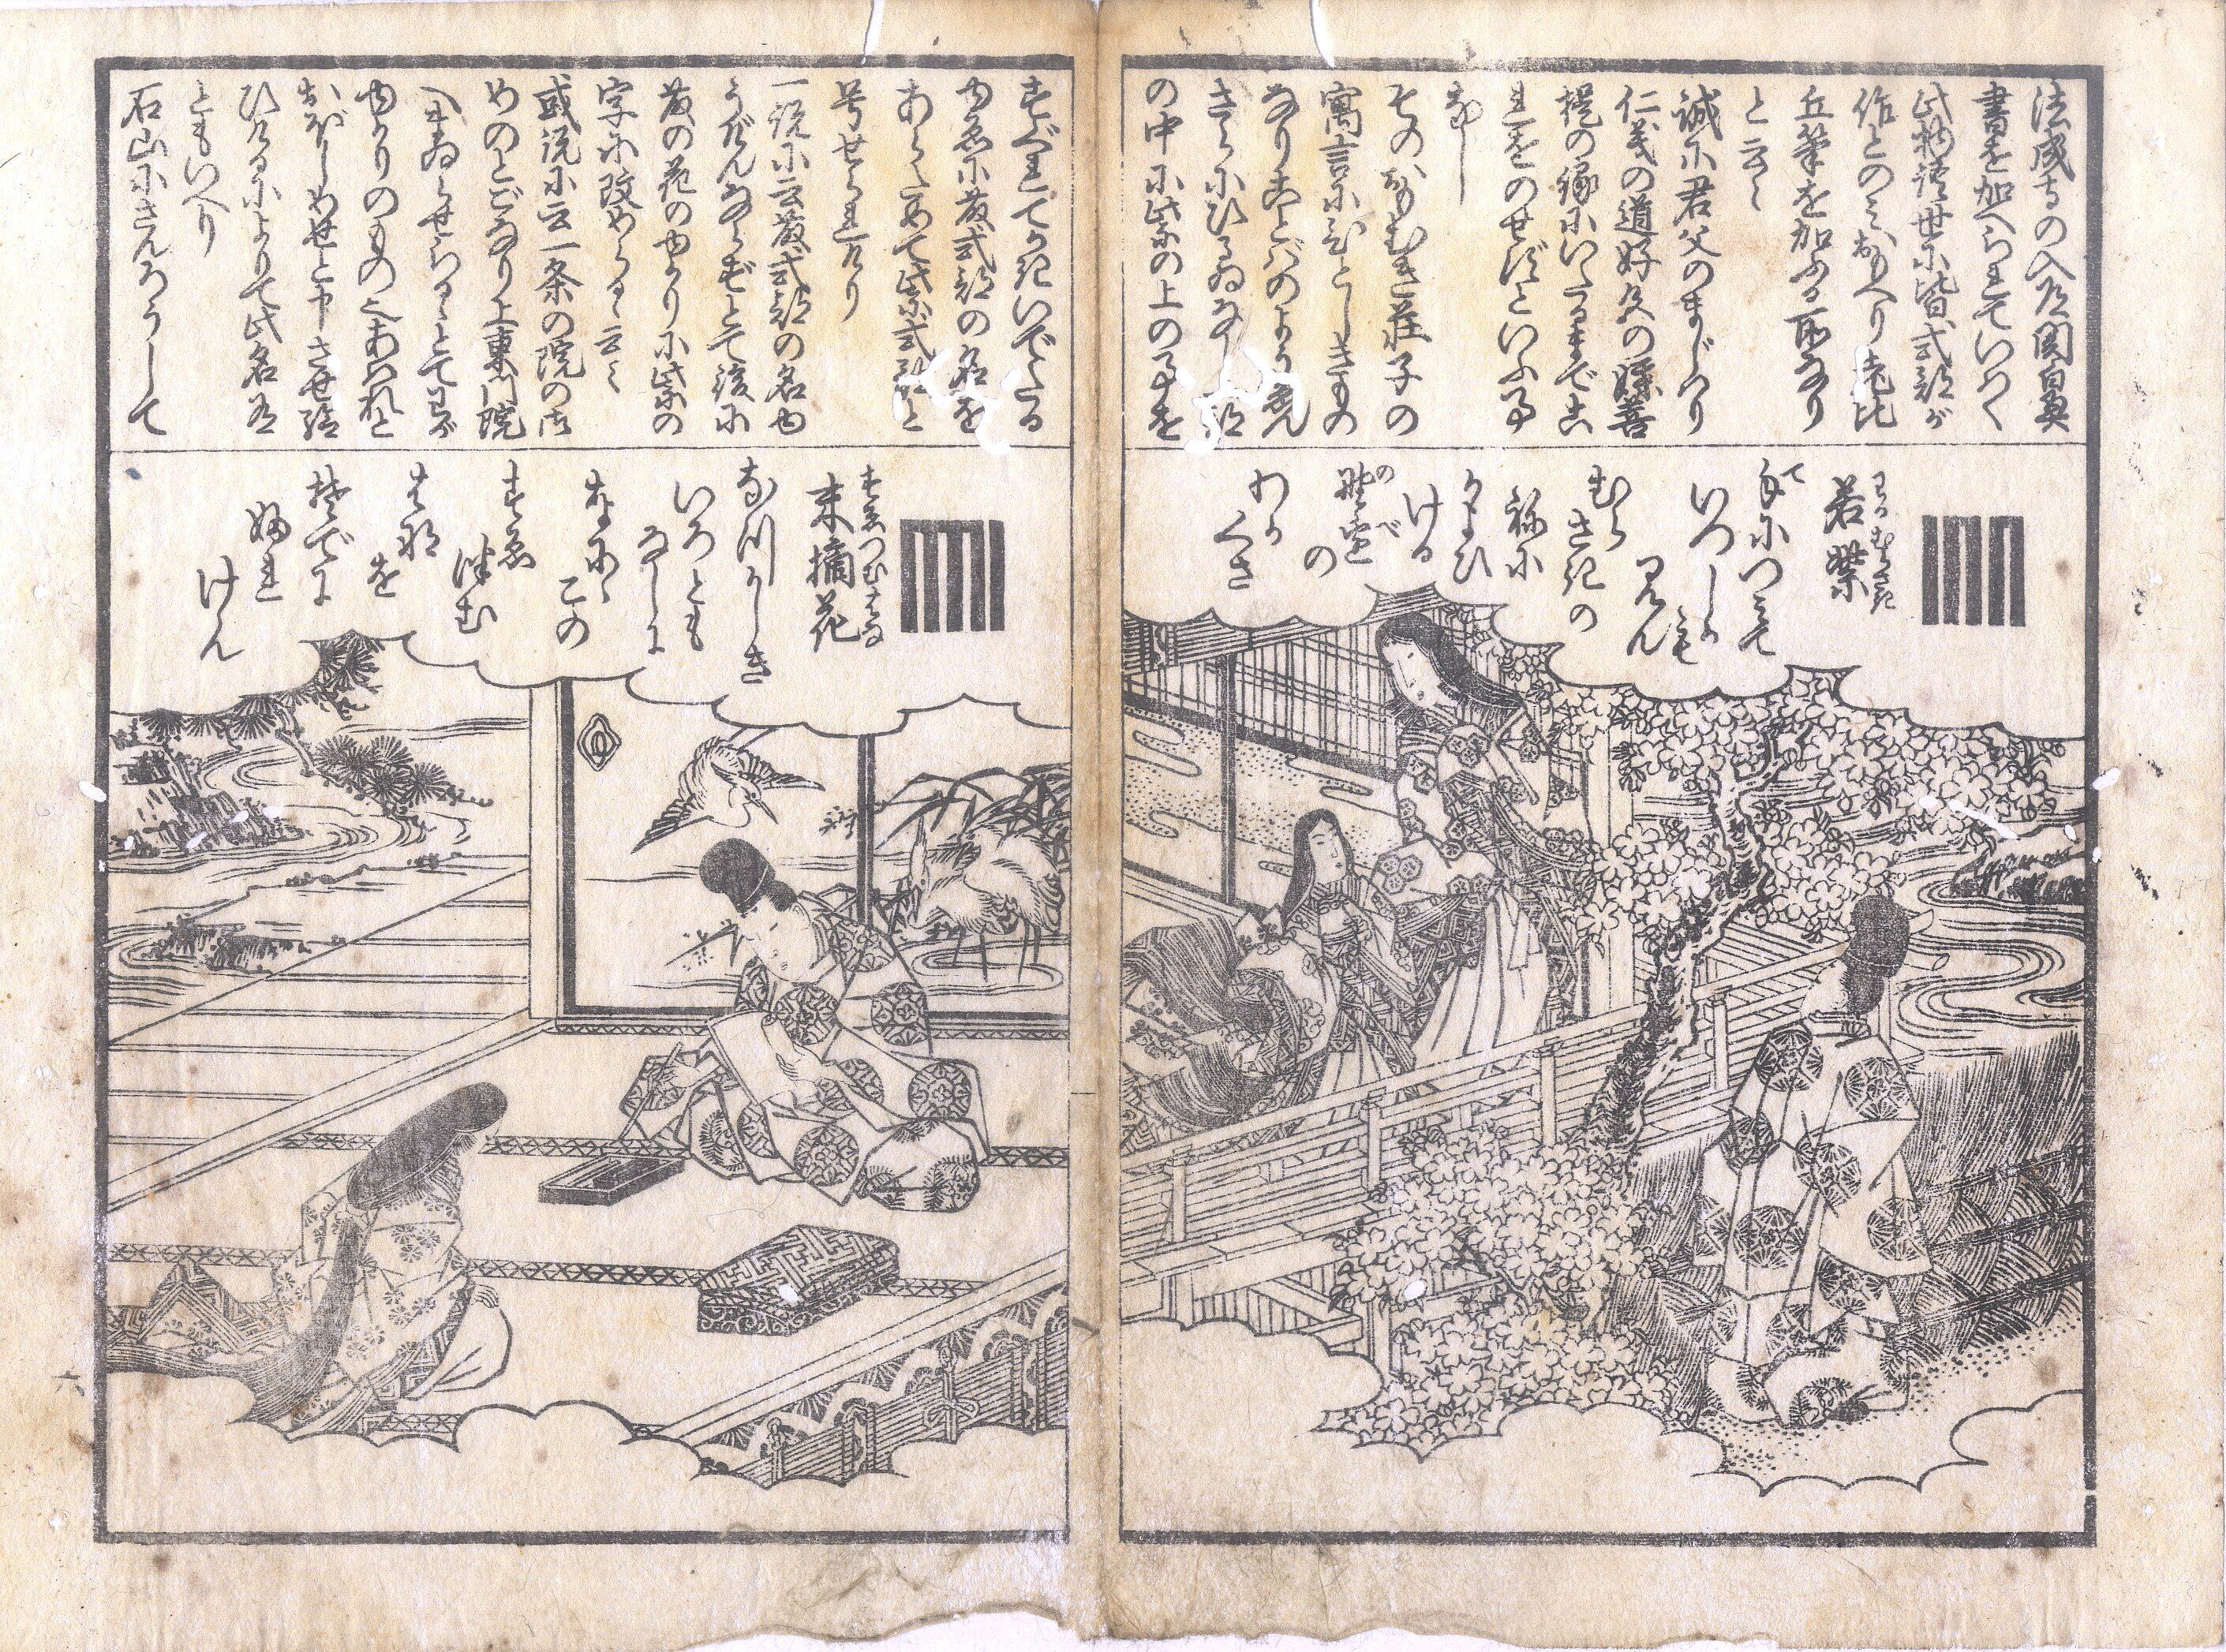 法成寺の入道関白奥
書を加へられていはく
此物語世に皆式部が
作とのみおもへり老比
丘筆を加ふる所なり
と云々
誠に君父のまじはり
仁義の道好色の媒菩
提の縁にいたるまでこ
れをのせずといふ事
なし
そのおもむき荘子の
寓言にひとしきもの
なりことばのよう艶
さらにひるゐなし
の中に紫の上の事を
すぐれてかきいでたる
ゆゑに藤式部の名を
あらためて紫式部と
号せられけり
一説に云藤式部の名ゆ
うげんならずとて後に
藤の花のゆかりに紫の
字に改めらる云々
或説に云一条の院の御
めのとご也上東門院
へまゐらせらるゝとてわが
ゆかりのもの也あはれと
おぼしめせと申させ給
ひけるによりて此名有
ともいへり
石山にさんろうして
わかむらさき
若紫
手につみて
いつしかも
見ん
むらさきの
ねに
かよひ
ける
野辺の
のべ
わか
くさ
すゑつむはな
末摘花
なつかしき
いろとも
なしに
なにゝ
この
すゑ
つむ
はな
を
袖に
ふれ
けん
六